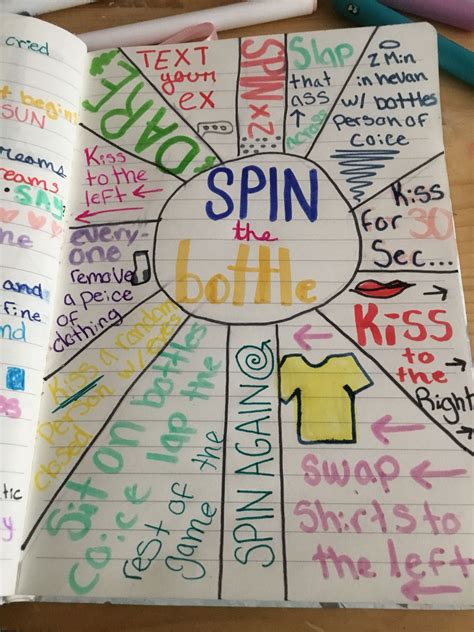 cried
SUN
SAY
and
SPIN
the
bottle
DARE
TEXT
your
ex
SPIN
2x
Slap
that
ass
across
2 Min
in hevan
w/ bottles
person of
coice
Kiss
for 30
Sec...
Kiss
to
the
Right
swap
Shirts to
the left
SPIN AGAIN
Sit on bottles
coice lap the
rest of the
Jame
Kiss a random
person w/ eyes
closed
every-
one
remove
a peice
of
clothing
Kiss
to the
left